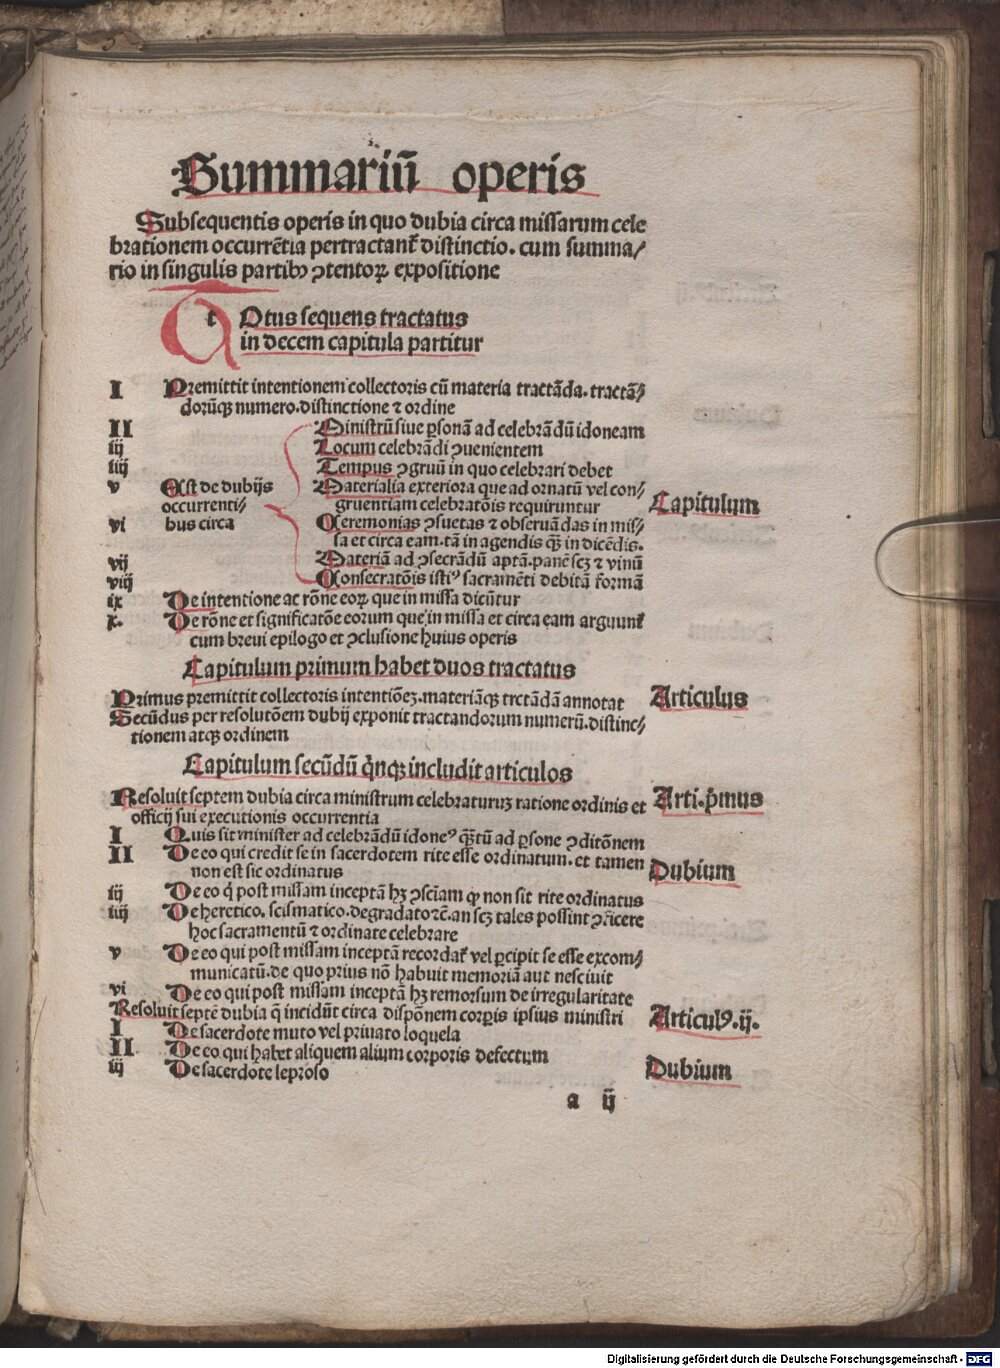 Summariū operis
Subsequentis operis in quo dubia circa missarum cele
brationem occurrētia pertractant̄ distinctio. cum summa/
rio in singulis partibꝰ ↄtentoꝝ expositione
t Otus sequens tractatus
in decem capitula partitur
I Premittit intentionem collectoris cū materia tractāda. tractā/
dorūqꝫ numero. distinctione ⁊ ordine
II Ministrū siue ꝑsonā ad celebrādū idoneam
iij Locum celebrādi ↄuenientem
iiij Tempus ↄgruū in quo celebrari debet
v Est de dubijs Materialia exteriora que ad ornatū vel con/
occurrenti/ gruentiam celebratōis requiruntur Capitulum
vi bus circa Ceremonias ↄsuetas ⁊ obseruādas in mis/
sa et circa eam. tā in agendis qꝫ in dicēdis.
vij Materiā ad ↄsecrādū aptā. panē scꝫ ⁊ vinū
viij Consecratōis istiꝰ sacramēti debitā formā
ix De intentione ac rōne eoꝝ que in missa dicūtur
x. De rōne et significatōe eorum que in missa et circa eam arguunt̄
cum breui epilogo et ↄclusione huius operis
Capitulum primum habet duos tractatus
Primus premittit collectoris intentiōeꝫ. materiāqꝫ trctādā annotat Articulus
Secūdus per resolutōem dubij exponit tractandorum numerū. distinc/
tionem atqꝫ ordinem
Capitulum secūdū q̇nqꝫ includit articulos
Resoluit septem dubia circa ministrum celebraturuꝫ ratione ordinis et Arti. p̄mus
officij sui executionis occurrentia
I Quis sit minister ad celebrādū idoneꝰ qꝫtū ad ꝑsone ↄditōnem
II De eo qui credit se in sacerdotem rite esse ordinatum. et tamen Dubium
non est sic ordinatus
iij De eo q̇ post missam inceptā hꝫ ↄsciam ꝙ non sit rite ordinatus
iiij De heretico. scismatico. degradato ⁊c̄. an scꝫ tales possint ↄficere
hoc sacramentū ⁊ ordinate celebrare
v De eo qui post missam inceptā recordat̄ vel ꝑcipit se esse excom/
municatū. de quo prius nō habuit memoriā aut nesciuit
vi De eo qui post missam inceptā hꝫ remorsum de irregularitate
Resoluit septē dubia q̄ incidūt circa dispōnem corꝑis ipsius ministri Articulꝰ. ij.
I De sacerdote muto vel priuato loquela
II De eo qui habet aliquem alium corporis defectum
iij De sacerdote leproso Dubium
a ij
Digitalisierung gefördert durch die Deutsche Forschungsgemeinschaft - DFG